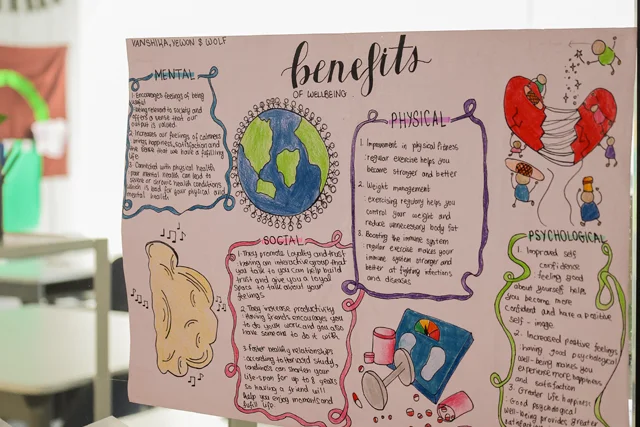 VANSHIKA, YEWON & WOLF
benefits
OF WELLBEING
MENTAL
1. Encourages feelings of being
useful
being relevant to society and
offers a sense that our
output is valued.
2. Increases our feelings of calmness
brings happiness, satisfaction and
the sense that we have a fulfilling
life.
3. Connected with physical health
poor mental health can lead to
severe or chronic health conditions
which is bad for your physical and
mental health.
PHYSICAL
1. Improvement in physical fitness
regular exercise helps you
become stronger and better
2. Weight management
exercising regulary helps you
control your weight and
reduce unnecessary body fat
3. Boosting the immune system
regular exercise makes your
immune system stronger and
better at fighting infections
and diseases
SOCIAL
1. They promote Loyalty and trust
Having an interactive group that
you talk to you can help build
trust and give you a loyal
space to talk about your
feelings
2. They increase productivity
Having friends encourages you
to do your work and you also
have someone to do it with
3. Foster healthy relationships
according to Harvard study,
loneliness can shorten your
life-span for up to 8 years
so having a friend will
help you enjoy moments and
fulfill life.
PSYCHOLOGICAL
1. Improved self
confidence
feeling good
about yourself helps
you become more
confident and have a positive
self-image.
2. Increased positive feelings
having good psychological
well-being makes you
experience more happiness
and satisfaction
3. Greater life happiness
Good psychological
well-being provides greater